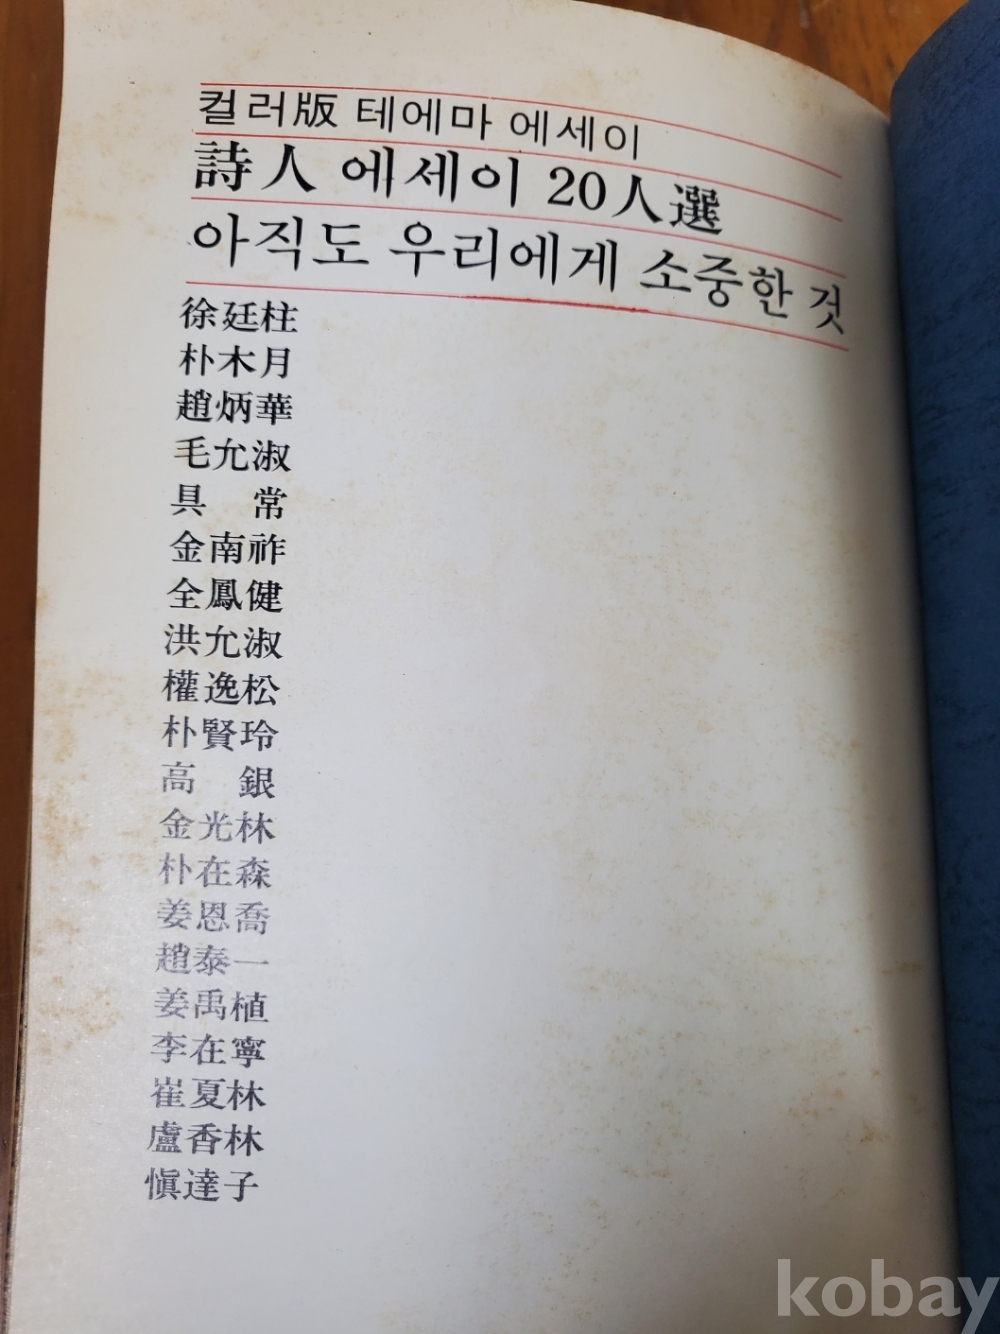 컬러版 테에마 에세이
詩人 에세이 20人選
아직도 우리에게 소중한 것
徐廷柱
朴木月
趙炳華
毛允淑
具 常
金南祚
全鳳健
洪允淑
權逸松
朴賢玲
高 銀
金光林
朴在森
姜恩喬
趙泰一
姜禹植
李在寧
崔夏林
盧香林
愼達子
kobay